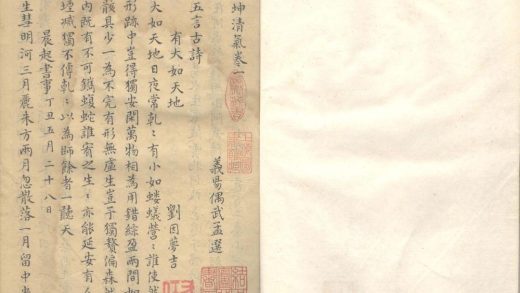 坤清氣卷一
義昜偶武孟選
五言古詩
有大如天地　劉因夢吉
大如天地日夜常乾:有小如螻蟻營:誰使然
形跡中豈得獨安閑萬物相為用錯綜盈兩間如
骸具少一為不完有形無虛生豈予獨贅偏森然
内既有不可鐫蝡蛇誰賓之生:亦能延安有么
堙滅獨不傳乾:以為師餘者一聽天
晨起書事丁丑五月二十八日
生彗明河三月麗朱方兩月忽散落一月留中